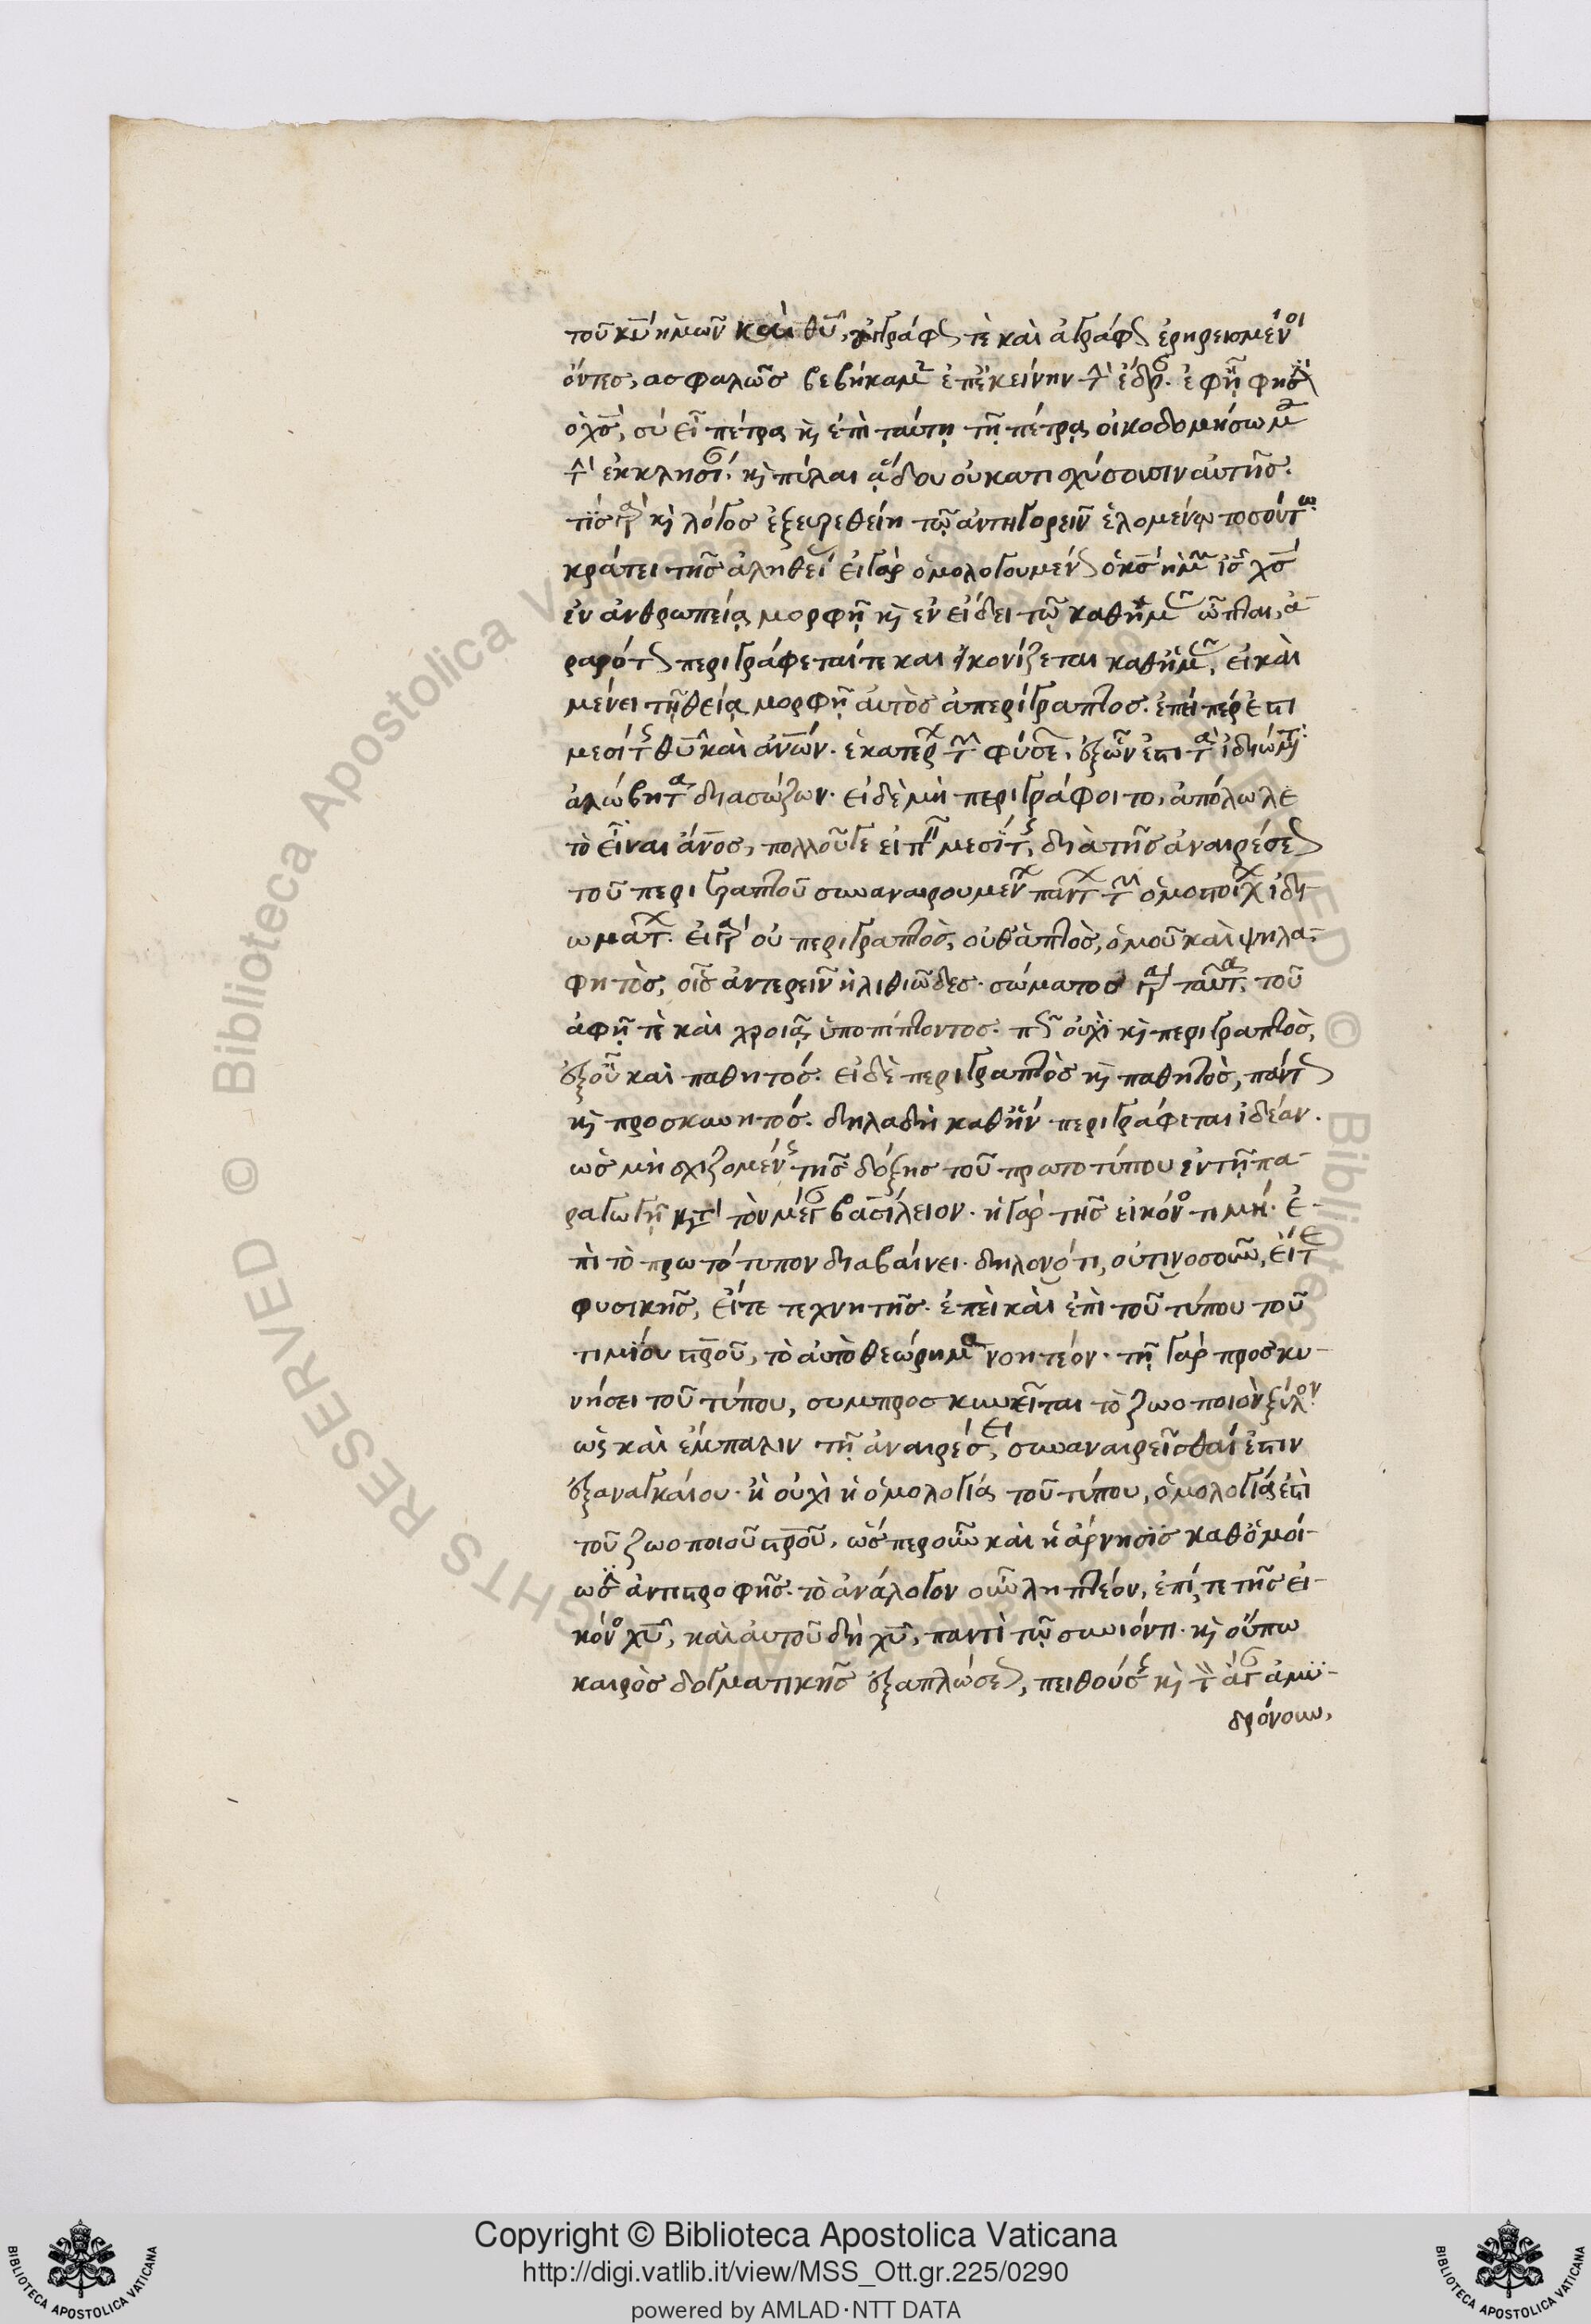 τοῦ κυ ἡμῶν καὶ θυ, ἐγγράφως τὲ καὶ ἀγράφως ἐρηρεισμένοι
ὄντες, ασφαλῶς βεβήκαμεν ἐπ ἐκείνην τὴν ἕδραν. ἐφ ᾗ φησὶν
ὁ χς, σύ εἶ πέτρος κὶ ἐπὶ ταύτῃ τῇ πέτρᾳ οἰκοδομήσω μου
τὴν ἐκκλησίαν. κὶ πύλαι ᾅδου οὐ κατισχύσουσιν αὐτῆς.
τίς γὰρ κὶ λόγος ἐξευρεθείη τῷ ἀντηγορεῖν ἑλομένῳ τοσούτω
κράτει τῆς ἀληθείας εἰ γὰρ ὁμολογουμένως ὁ κς ἡμῶν ις χς
ἐν ἀνθρωπείᾳ μορφῇ κὶ ἐν εἴδει τῷ καθ ἡμᾶς ὦπται, ἀ-
ραρότως περιγράφεταί τε καὶ εἰκονίζεται καθ ἡμᾶς, εἰ καὶ
μένει τῇ θείᾳ μορφῇ αὐτὸς ἀπερίγραπτος. ἐπεί περ ἐστι
μεσίτης θυ καὶ ανων. ἑκατέρων τῶν φύσεων, ἐξ ὧν ἐστι τὰ ἰδιώματα
ἀλώβητα διασώζων. εἰ δὲ μὴ περιγράφοιτο, ἀπόλωλε
τὸ εἶναι ανος, πολλοῦ γε εἰπεῖν μεσίτης, διὰ τῆς ἀναιρέσεως
τοῦ περιγραπτοῦ συναναιρουμένων πάντων τῶν ὁμοστοίχων ἰδι-
ωμάτων. εἰ γὰρ οὐ περιγραπτὸς, οὐθ ἁπτὸς, ὁμοῦ καὶ ψηλα-
φητὸς, οἷς ἀντερεῖν ἠλιθιῶδες. σώματος γὰρ ταῦτα, τοῦ
ἁφῇ τὲ καὶ χροιᾷ ὑποπίπτοντος. πῶς οὐχὶ κὶ περιγραπτὸς,
ἐξ οὗ καὶ παθητός. εἰ δὲ περιγραπτὸς κὶ παθητὸς, πάντως
κὶ προσκυνητός. δηλαδὴ καθ ἣν περιγράφεται ἰδέαν.
ὡς μὴ σχιζομένης τῆς δόξης τοῦ πρωτοτύπου ἐν τῇ πα-
ραγωγῇ κατὰ τὸν μέγαν βασίλειον. ἡ γὰρ τῆς εἰκόνος τιμή. ἐ-
πὶ τὸ πρωτότυπον διαβαίνει. δηλονότι, οὑτινοσοῦν, εἴτε
φυσικῆς, εἴτε τεχνητῆς. ἐπεὶ καὶ ἐπὶ τοῦ τύπου τοῦ
τιμίου στρου, τὸ αὐτὸ θεώρημα νοητέον. τῇ γὰρ προσκυ-
νήσει τοῦ τύπου, συμπροσκυνεῖται τὸ ζωοποιὸν ξύλον.
ὡς καὶ ἔμπαλιν τῇ ἀναιρέσει, συναναιρεῖσθαί ἐστιν
ἐξαναγκαίου. ἢ οὐχὶ ἡ ὁμολογία τοῦ τύπου, ὁμολογία ἐστὶ
τοῦ ζωοποιοῦ στρου, ὥσπερ οὖν καὶ ἡ ἄρνησις καθ ὁμοί-
ως ἀντιστροφῆς. τὸ ἀνάλογον οὖν ληπτέον, ἐπί τε τῆς εἰ-
κόνος χυ, καὶ αὐτοῦ δὴ χυ, παντὶ τῷ συνιόντι. κὶ οὔπω
καιρὸς δογματικῆς ἐξαπλώσεως, πειθούσης κὶ τὸν ἄγαν ἀμυ-
δρόνουν,
Copyright © Biblioteca Apostolica Vaticana
http://digi.vatlib.it/view/MSS_Ott.gr.225/0290
powered by AMLAD·NTT DATA